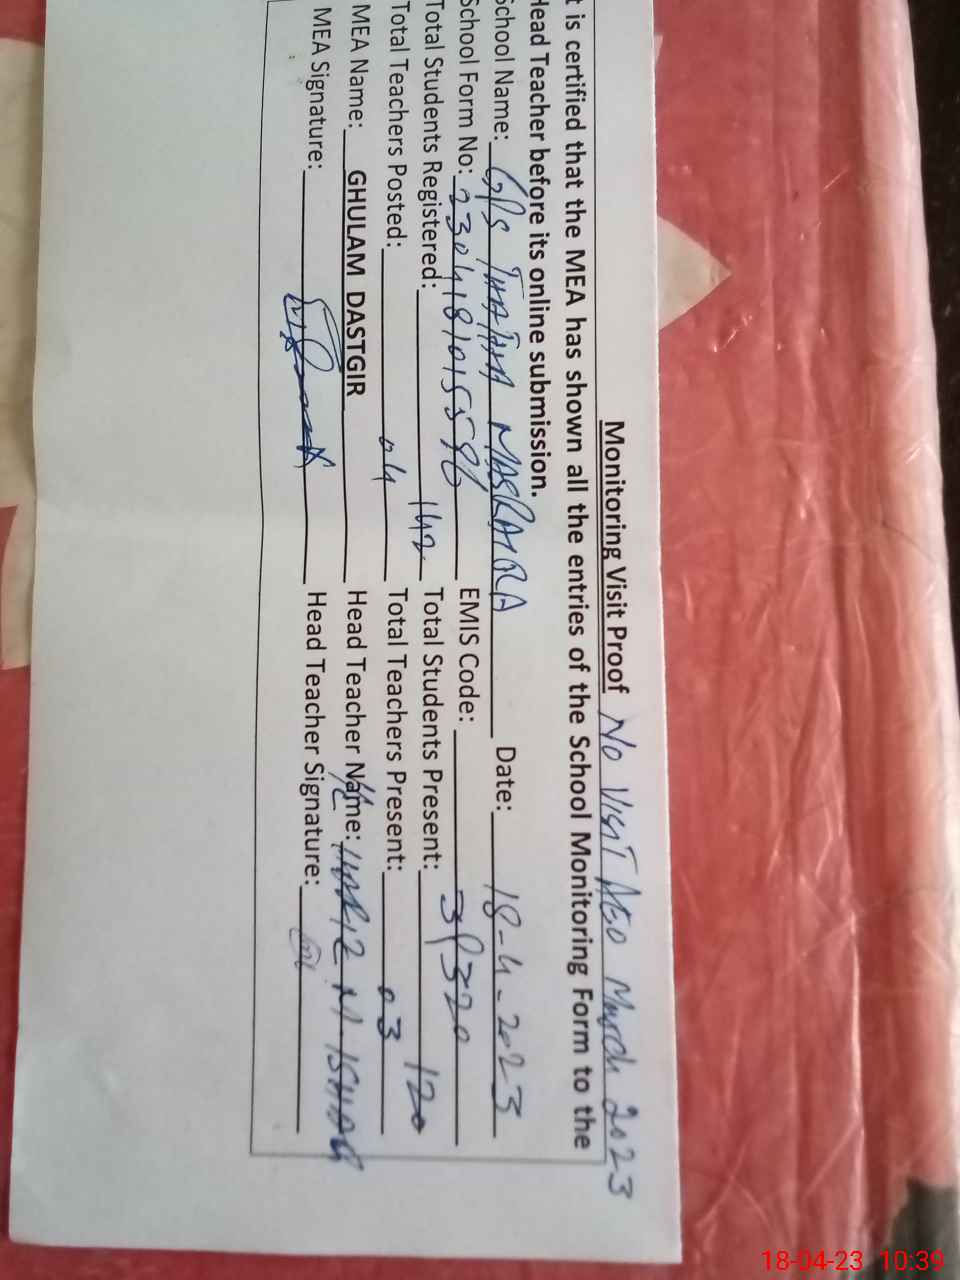 Monitoring Visit Proof No Visit AEO March 2023
t is certified that the MEA has shown all the entries of the School Monitoring Form to the
Head Teacher before its online submission.
School Name: GPS THATHA MASRAIRA Date: 18-4-2023
School Form No: 23041810155 96 EMIS Code: 39320
Total Students Registered: 142 Total Students Present: 120
Total Teachers Posted: 04 Total Teachers Present: 03
MEA Name: GHULAM DASTGIR Head Teacher Name: M. ISHAQ
MEA Signature: Head Teacher Signature:
18-04-23 10:39